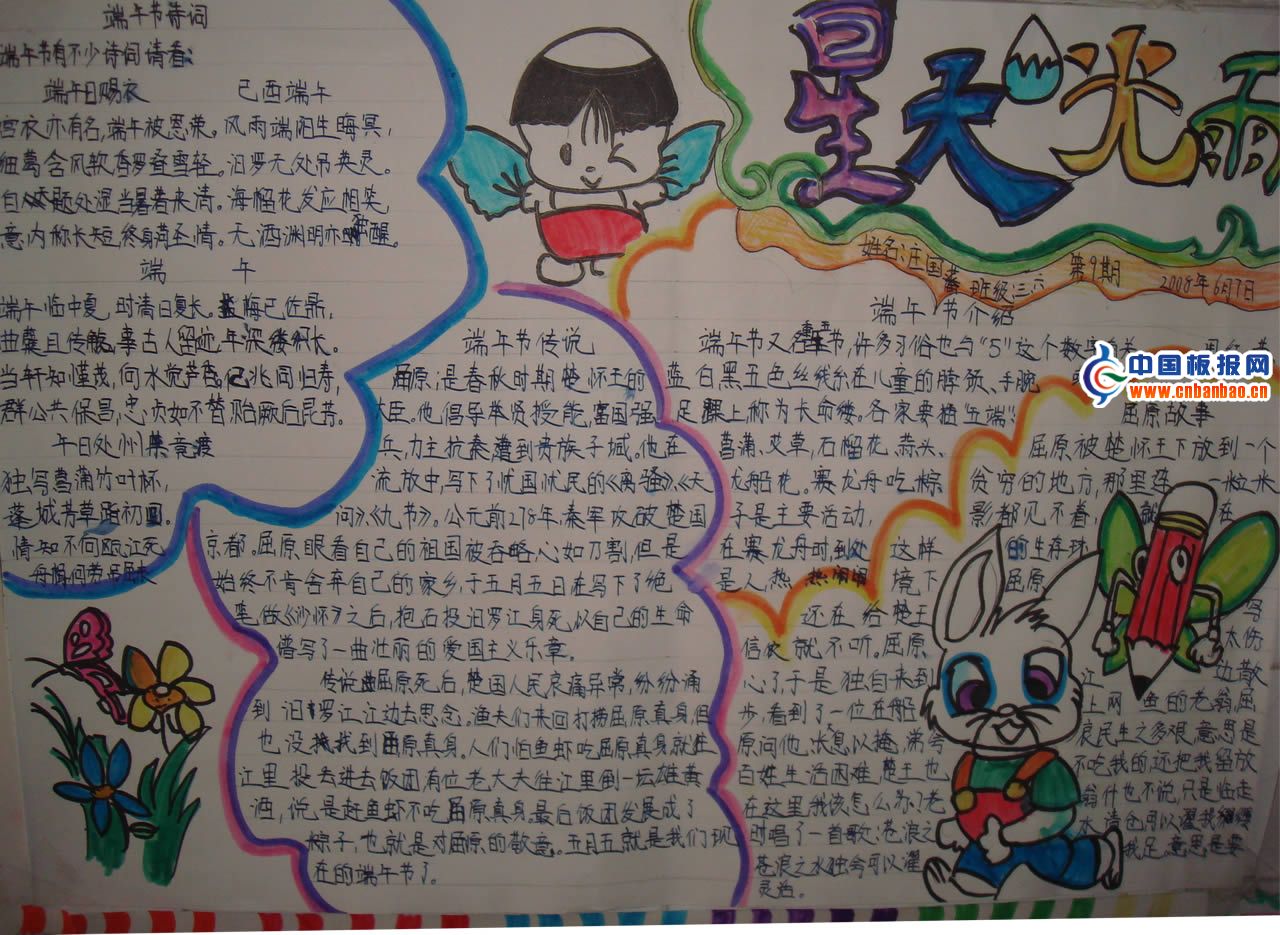 星天光雨
姓名:庄国蕃 班级:三六 第9期 2008年6月7日
中国板报网
www.cnbanbao.cn
端午节诗词
端午节有不少诗词请看:
端午日赐衣
宫衣亦有名,端午被恩荣。
细葛含风软,香罗叠雪轻。
自天题处湿,当暑著来清。
意内称长短,终身荷圣情。
己酉端午
风雨端阳生晦冥,
汨罗无处吊英灵。
海榴花发应相笑,
无酒渊明亦独醒。
端 午
端午临中夏,时清日复长。盐梅已佐鼎,
曲蘖且传觞,事古人留迹,年深缕积长。
当轩知槿茂,向水觉芦香。已兆同归寿,
群公共保昌,忠贞如不替贻厥后昆芳。
午日处州禁竞渡
独写菖蒲竹叶杯,
蓬城芳草踏初回。
情知不向瓯江死
舟楫何劳吊屈来
端午节传说
屈原,是春秋时期楚怀王的
大臣。他倡导举贤授能,富国强
兵,力主抗秦遭到贵族子
他在
流放中,写下了忧国忧民的《离骚》、《天
问》、《九节》。公元前278年,秦军攻破楚国
京都。屈原眼看自己的祖国被吞略,心如刀割,但是
始终不肯舍弃自己的家乡,于五月五日在写下了绝
笔做《沙怀》之后,抱石投汨罗江身死,以自己的生命
谱写了一曲壮丽的爱国主义乐章。
传说屈原死后,楚国人民哀痛异常,纷纷涌
到汨罗江江边去思念。渔夫们来回打捞屈原真身,但
也没找到屈原真身。人们怕鱼虾吃屈原真身就往
江里投去进去饭团有位老大夫往江里倒一坛雄黄
酒,说是赶鱼虾不吃屈原真身最后饭团发展成了
粽子,也就是对屈原的敬意。五月五就是我们现
在的端午节了。
端午节介绍
端午节又名重五节,许多习俗也与"5"这个数
蓝白黑五色丝线糸在儿童的脖颈、手腕
足踝上称为长命缕。各家要插"五端":
菖蒲、艾草、石榴花、蒜头、
龙船花。赛龙舟吃粽
子是主要活动,
在赛龙舟时到处
是人热热闹闹
屈原故事
屈原被楚怀王下放到一个
贫穷的地方,那里连一粒米
影都见不着 就 在
这样的生存环
境下 屈原
还在给楚王写
信使就不听。屈原太伤
心了于是独自来到江 边散
步,看到了一位在船上网鱼的老翁屈
原问他,长息以掩
哀民生之多艰意思是
百姓生活困难,楚王也不吃我的,还把我留放
在这里,我该怎么办?老翁什也不说,只是临走
时唱了一首歌:苍浪之水清
可以濯我
苍浪之水独兮可以濯我足。意思是要
灵活。